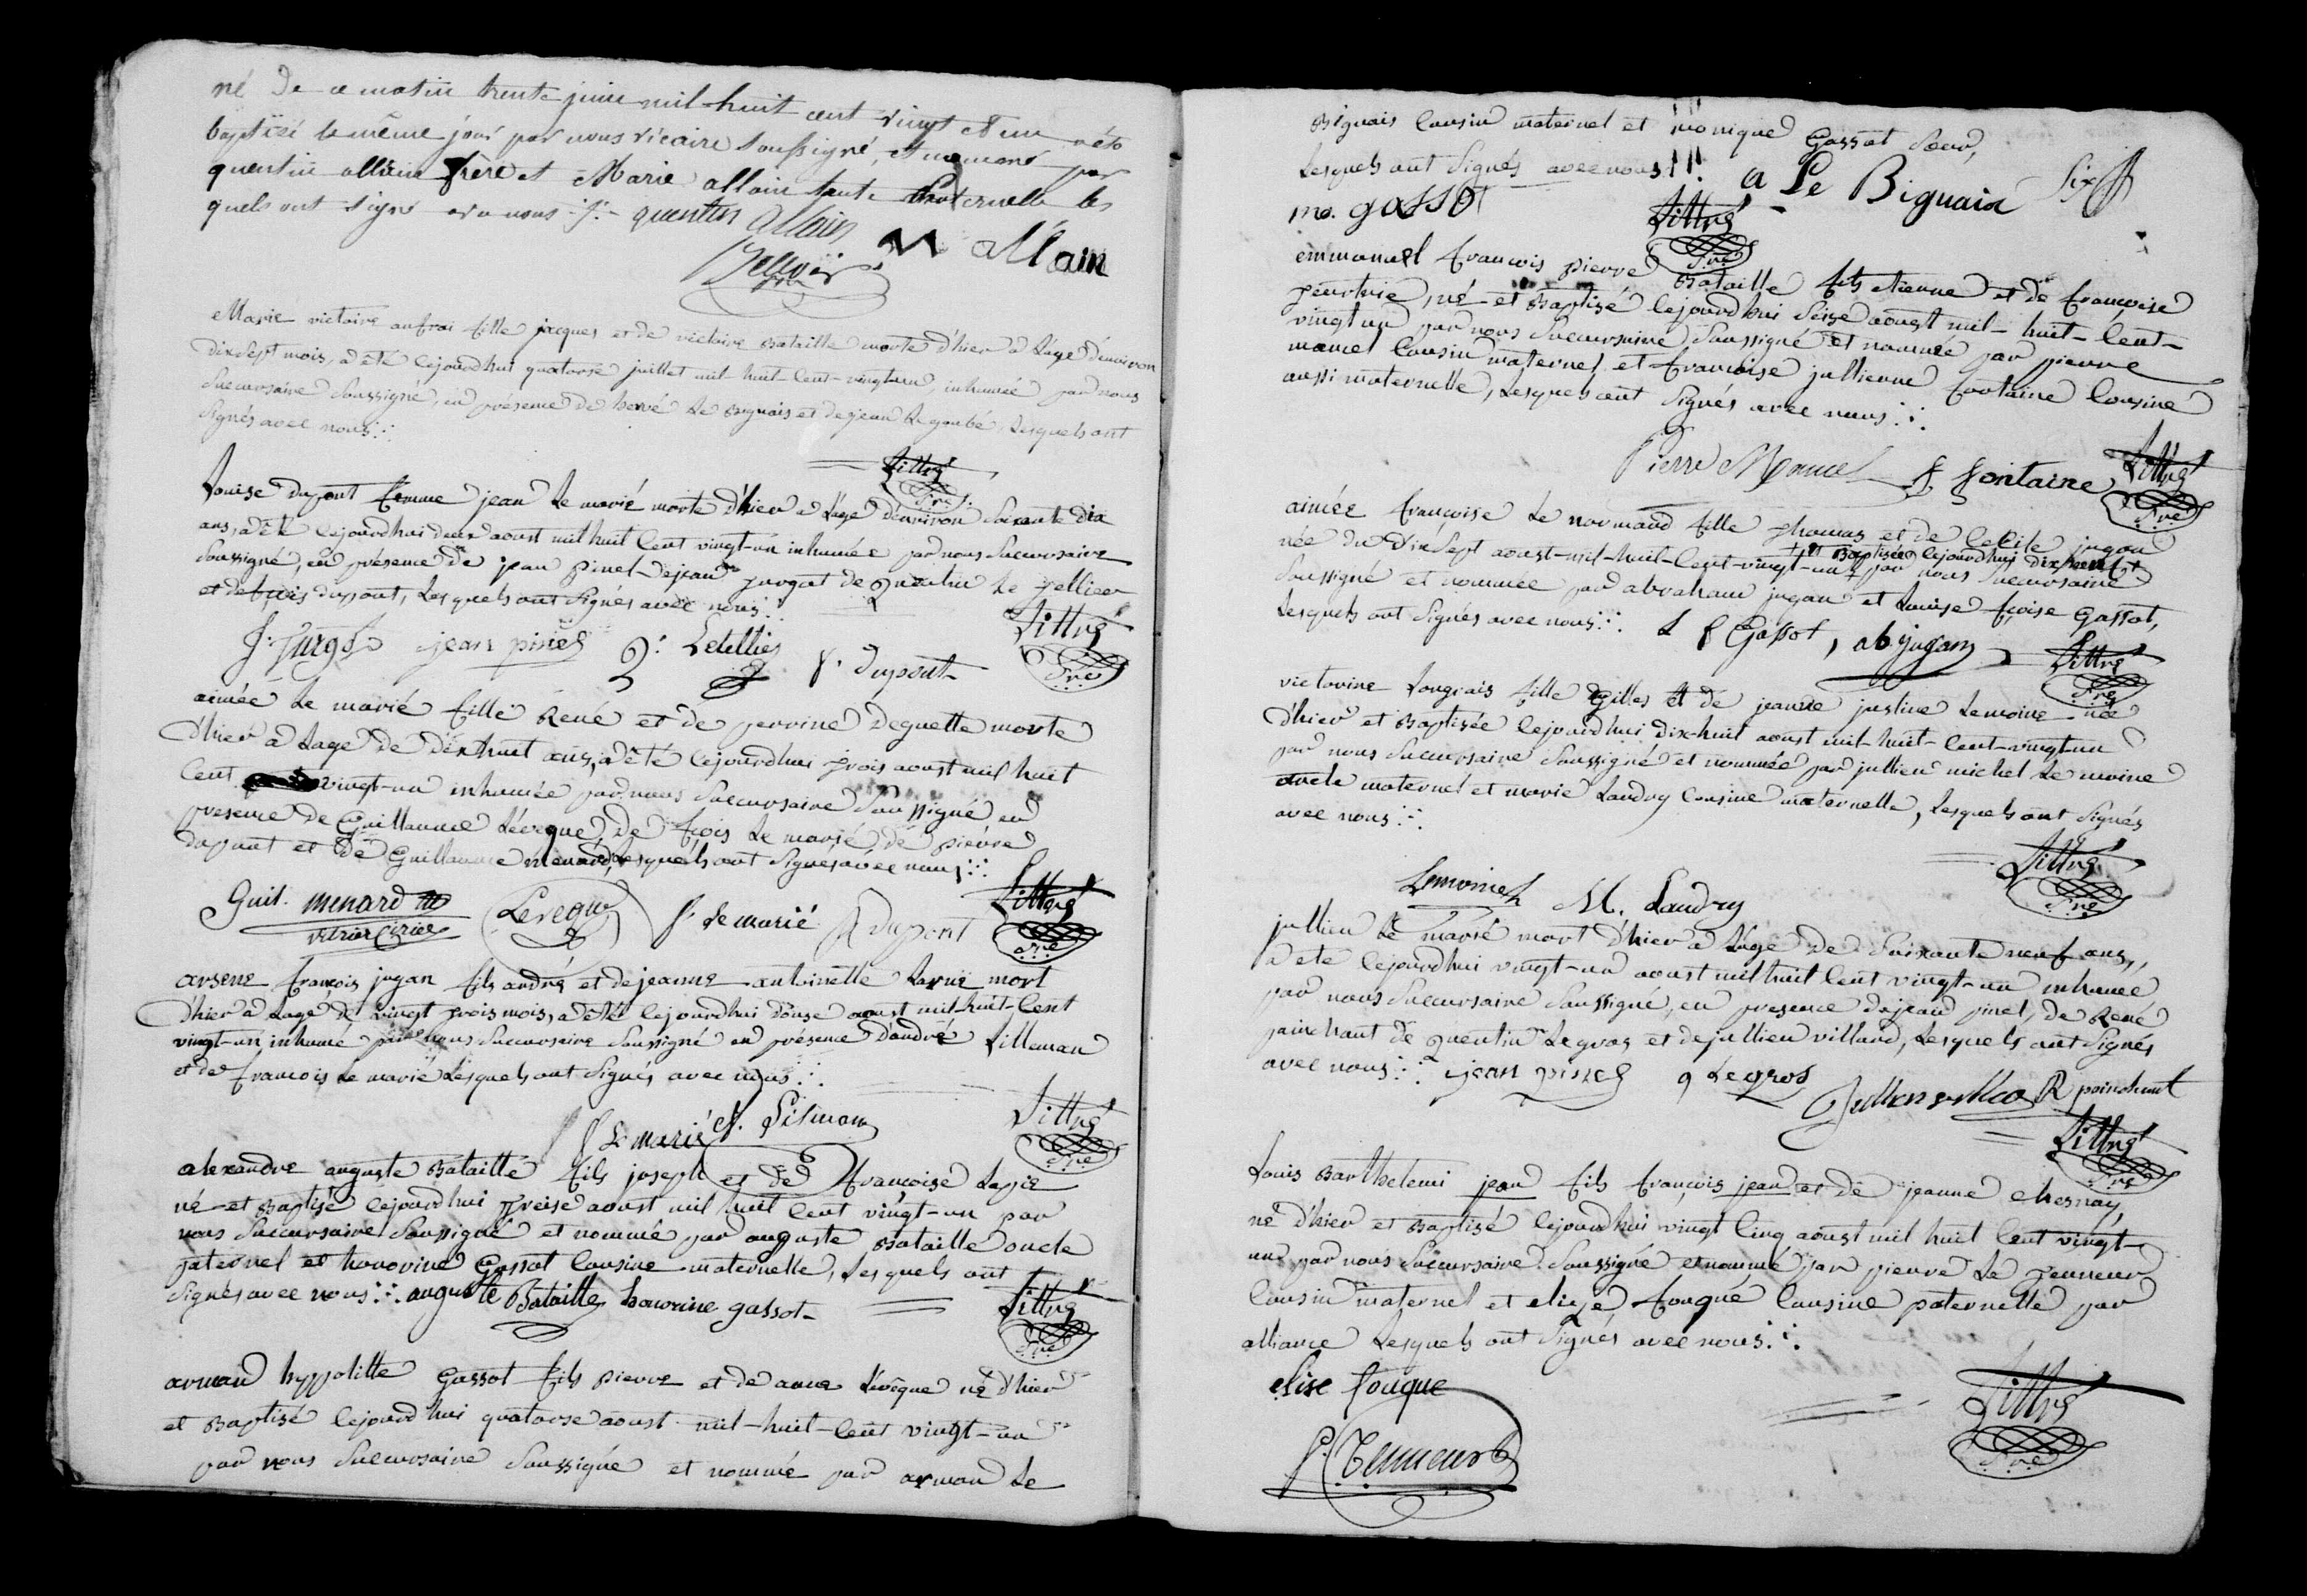 né de ce matin trente juin mil huit cent vingt et un a été
baptisé le même jour par nous vicaire soussigné, et nommé par
quentin allain frère et Marie allain tante les
quels ont signé avec nous quentin allain
M allain
Marie victoire aufrai fille jacques et de victoire Bataille morte d'hier a l'age d'environ
dix sept mois, a été cejourdhui quatorse juillet mil-huit-cent-vingt-un, inhumée par nous
Succursaire Soussigné, en présence de hervé Le Bignais et de jean Le goubé, Lesquels ont
Signés avec nous
Littré
Pre
Louise dupont femme jean Le marié morte d'hier a l'age d'environ Soixante dix
ans, a été cejourdhui deux aoust mil huit cent vingt-un inhumée par nous Succursaire
Soussigné, en présence de jean pinel de jean Jurgot de Quentin Le Tellier
et de fçois dupont, Lesquels ont Signés avec nous
Littré
J. Jurgot jean pinel Q. Letellier f. dupont
Pre
aimée Le marié fille René et de perrine Deguette morte
d'hier a l'age de dix huit ans, a été cejourdhui trois aoust mil huit
Cent vingt-un inhumée par nous Succursaire Soussigné en
presence de Guillaume Lévêque, de fçois Le marié, de pierre
dupont et de Guillaume menard, Lesquels ont Signés avec nous
Guil. menard Leveque f Le marié P dupont Littré
Pre
arsene françois jugan fils andré et de jeanne antoinette Larue mort
d'hier a l'age de vingt trois mois, a été cejourdhui douse aoust mil-huit-Cent
vingt-un inhumé par nous Succursaire Soussigné en présence d'andré Lilleman
et de francois Le marié Lesquels ont Signés avec nous
f Le marié Littré
Pre
alexandre auguste Bataille fils joseph et de françoise Lapie
né et Baptisé cejourdhui treise aoust mil huit cent vingt-un par
nous Succursaire Soussigné et nommé par auguste Bataille oncle
paternel et honorine Gassot Cousine maternelle, Lesquels ont
Signés avec nous auguste Bataille honorine gassot Littré
Pre
arman hyppolitte Gassot fils pierre et de anne Lévêque né d'hier
et Baptisé cejourdhui quatorse aoust mil-huit-cent vingt-un
par nous Succursaire Soussigné et nommé par arman Le
Bignais Cousin maternel et monique Gassot Soeur,
Lesquels ont Signés avec nous a Le Bignaix Six
mo. gassot Littré
Pre
emmanuel francois pierre Bataille fils etienne et de françoise
né et Baptisé cejourdhui Seise aoust mil-huit-Cent-
vingt un par nous Succursaire Soussigné et nommé par pierre
manuel Cousin maternel et françoise jullienne fontaine Cousine
aussi maternelle, Lesquels ont Signés avec nous
Pierre Manuel f fontaine Littré
Pre
aimée françoise Le normand fille thomas et de Cecile jugan
née du Dix Sept aoust-mil-huit-Cent-vingt-un par nous Succursaire
et Baptisée cejourdhui dix huit
Soussigné et nommée par abraham jugan et Louise fçoise Gassot,
Lesquels ont Signés avec nous L f Gassot, ab jugan Littré
Pre
victorine Longrais fille Gilles et de jeanne justine Lemoine née
d'hier et Baptisée cejourdhui dix-huit aoust mil-huit-cent-vingt-un
par nous Succursaire Soussigné et nommée par jullien michel Le moine
oncle maternel et marie Landry Cousine maternelle, Lesquels ont Signés
avec nous
Littré
Lemoine M. Landry
Pre
jullien Le marié mort d'hier a l'age de Soixante neuf ans,
a été cejourdhui vingt-un aoust mil huit cent vingt-un inhumé
par nous Succursaire Soussigné, en presence de jean pinel, de René
painchaut de Quentin Legros et de jullien villard, Lesquels ont Signés
avec nous jean pinel q Legros R painchaut
Littré
Pre
Louis Barthelemi jean fils françois jean et de jeanne chesnay,
né d'hier et Baptisé cejourdhui vingt Cinq aoust mil huit cent vingt-
un par nous Succursaire Soussigné et nommé par pierre Le Tenneur
Cousin maternel et elize fouqué Cousine paternelle par
alliance Lesquels ont Signés avec nous
elise fouque Littré
Pre
P. Tenneur